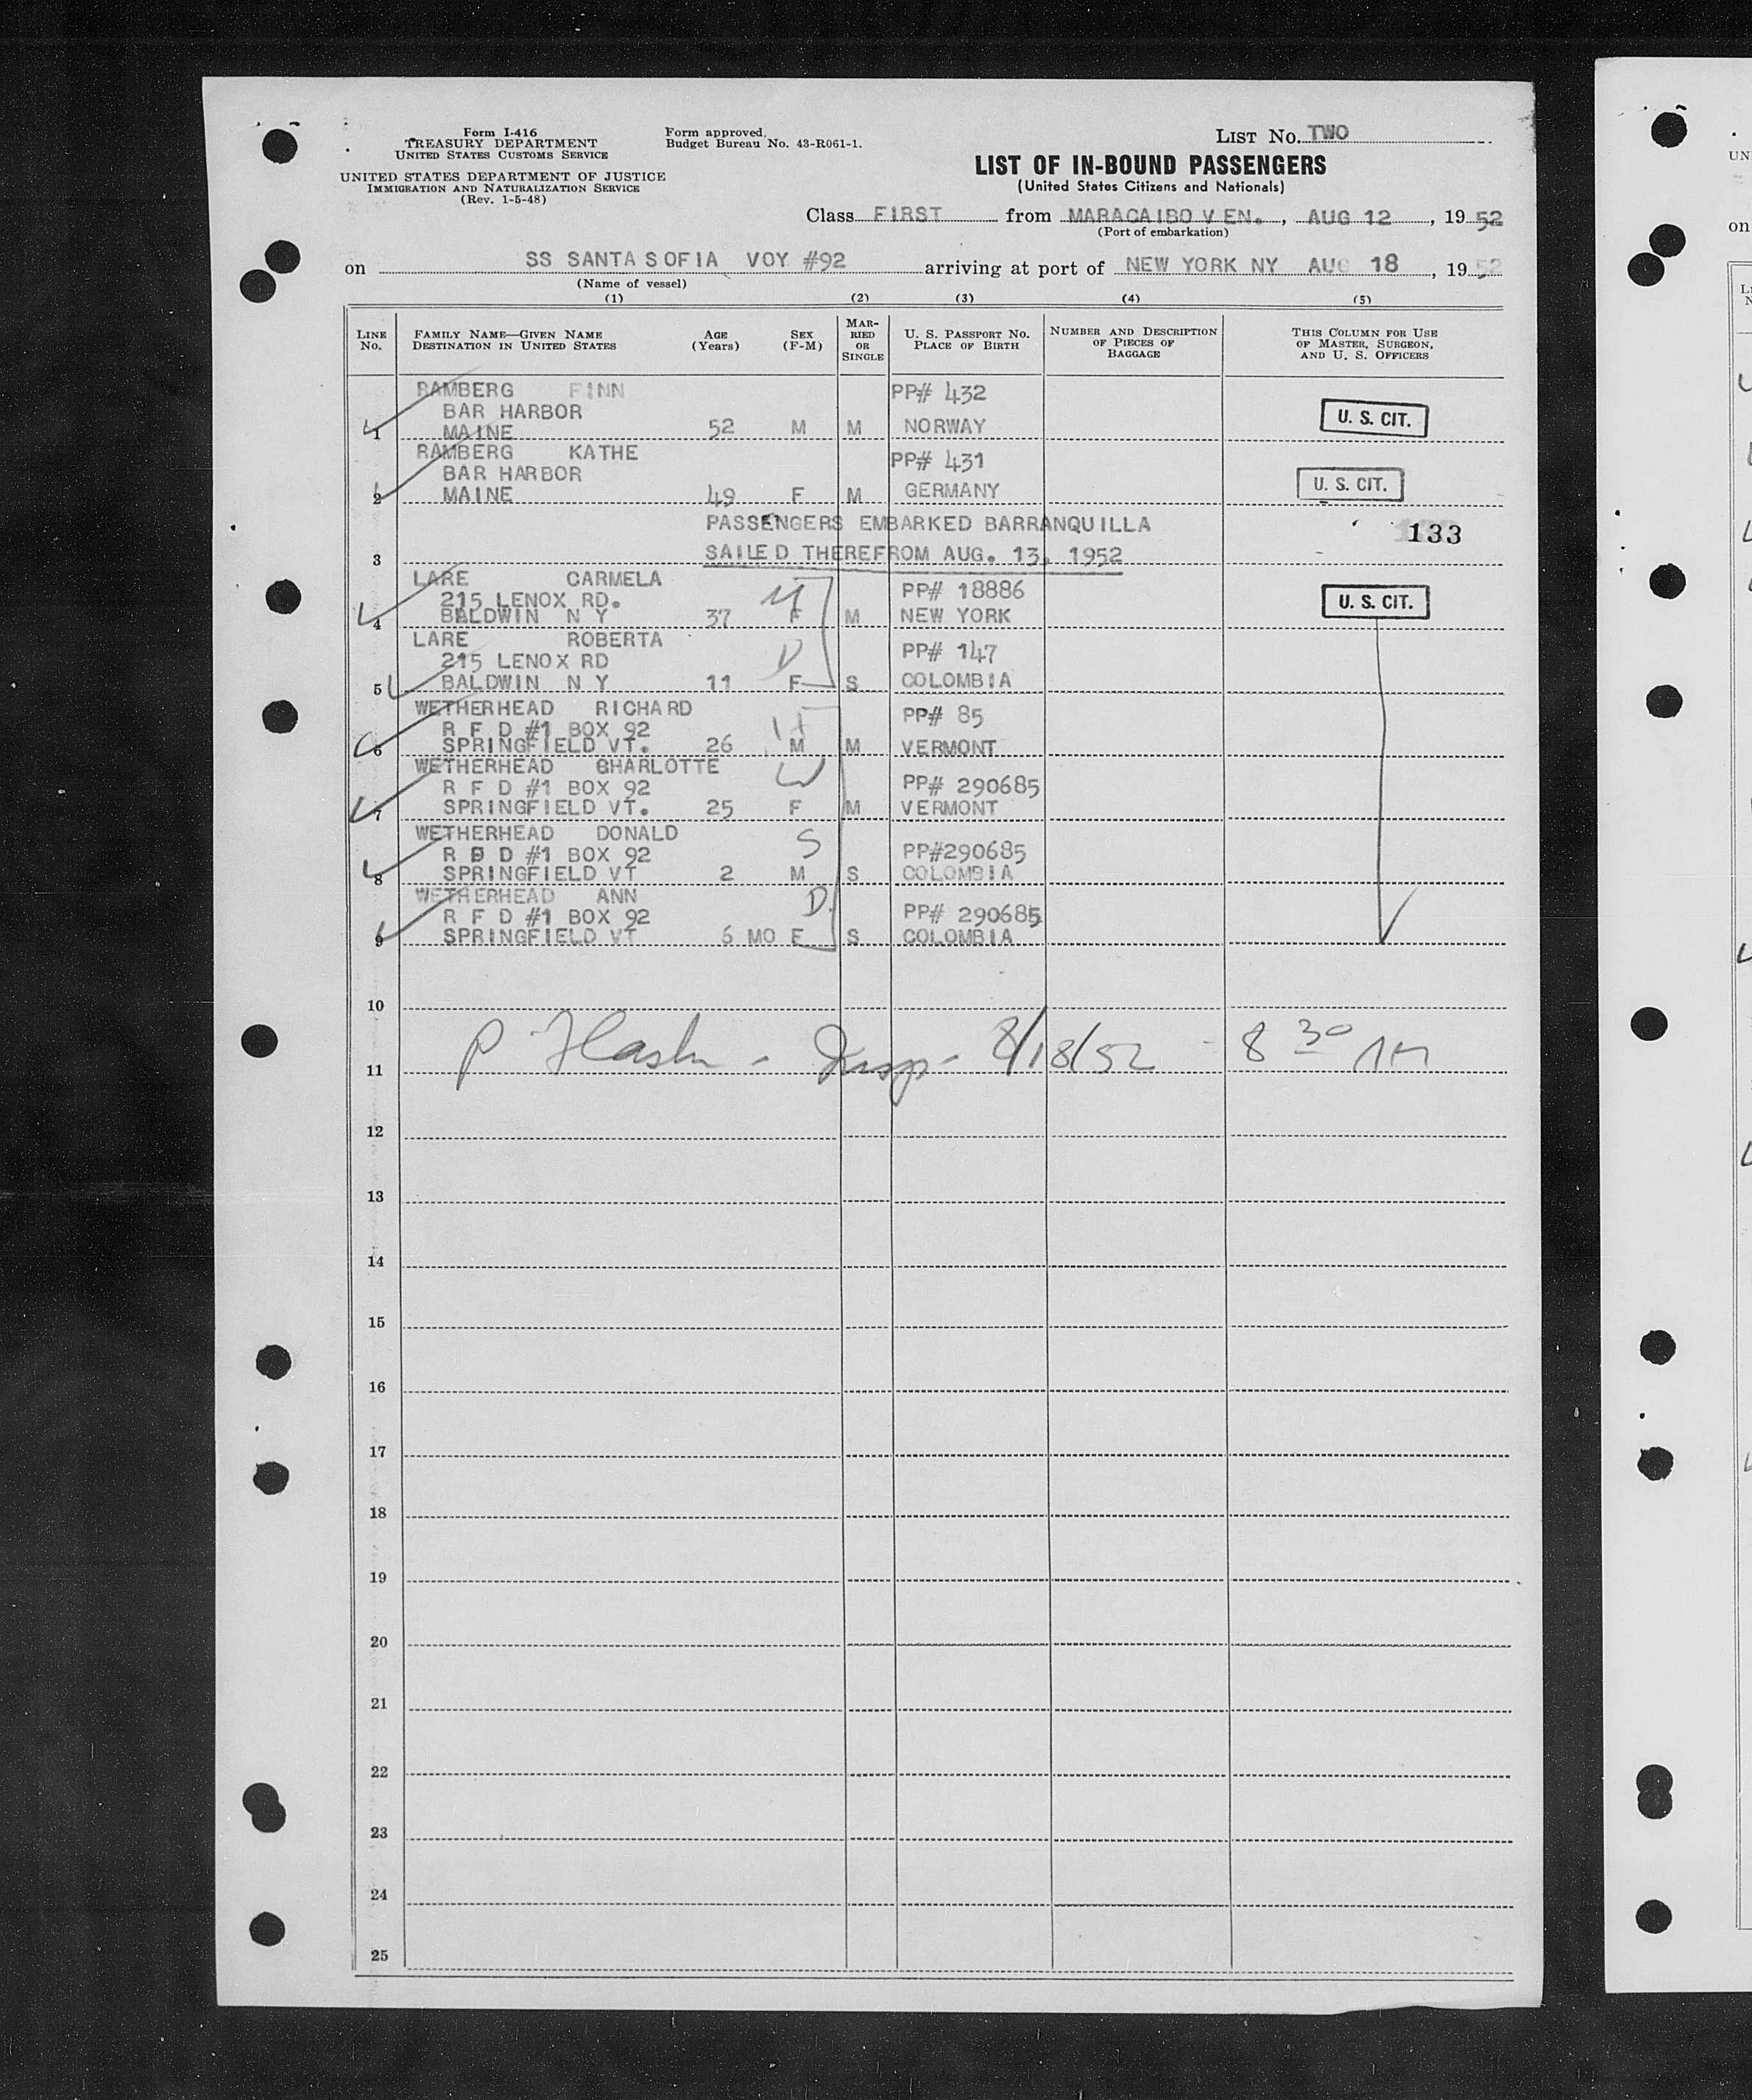 Form I-416
TREASURY DEPARTMENT
UNITED STATES CUSTOMS SERVICE
UNITED STATES DEPARTMENT OF JUSTICE
IMMIGRATION AND NATURALIZATION SERVICE
(Rev. 1-5-48)
Form approved.
Budget Bureau No. 43-R061-1.
LIST No. TWO
LIST OF IN-BOUND PASSENGERS
(United States Citizens and Nationals)
Class FIRST from MARACAIBO VEN., AUG 12, 1952
(Port of embarkation)
on SS SANTA SOFIA VOY #92 arriving at port of NEW YORK NY AUG 18, 1952
(Name of vessel)
(1) (2) (3) (4) (5)
LINE No.
FAMILY NAME—GIVEN NAME
DESTINATION IN UNITED STATES
AGE (Years)
SEX (F-M)
MARRIED OR SINGLE
U. S. PASSPORT NO.
PLACE OF BIRTH
NUMBER AND DESCRIPTION OF PIECES OF BAGGAGE
THIS COLUMN FOR USE OF MASTER, SURGEON, AND U. S. OFFICERS
RAMBERG FINN PP# 432
BAR HARBOR U. S. CIT.
1 MAINE 52 M M NORWAY
RAMBERG KATHE PP# 431
BAR HARBOR U. S. CIT.
2 MAINE 49 F M GERMANY
PASSENGERS EMBARKED BARRANQUILLA 133
3 SAILED THEREFROM AUG. 13, 1952
LARE CARMELA PP# 18886
215 LENOX RD. M U. S. CIT.
4 BALDWIN N Y 37 F M NEW YORK
LARE ROBERTA PP# 147
215 LENOX RD D
5 BALDWIN N Y 11 F S COLOMBIA
WETHERHEAD RICHARD PP# 85
R F D #1 BOX 92 H
6 SPRINGFIELD VT. 26 M M VERMONT
WETHERHEAD CHARLOTTE W
R F D #1 BOX 92 PP# 290685
7 SPRINGFIELD VT. 25 F M VERMONT
WETHERHEAD DONALD S
R F D #1 BOX 92 PP#290685
8 SPRINGFIELD VT 2 M S COLOMBIA
WETHERHEAD ANN D
R F D #1 BOX 92 PP# 290685
9 SPRINGFIELD VT 6 MO F S COLOMBIA
10
11 Insp - 8/18/52 - 8 30 AM
12
13
14
15
16
17
18
19
20
21
22
23
24
25